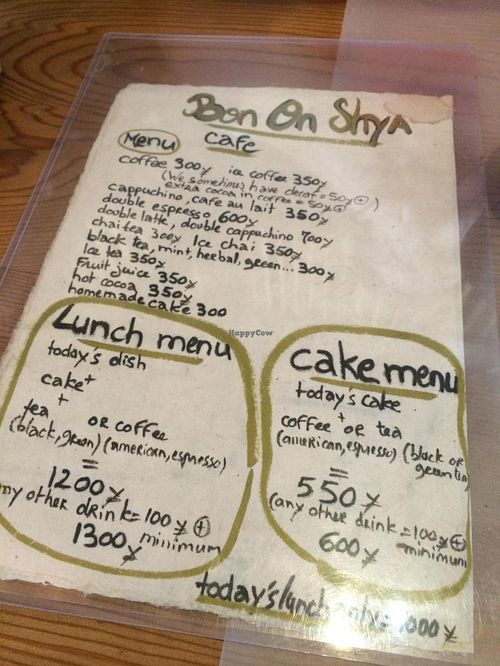 Bon On Shya
Menu cafe
coffee 300y ice coffee 350y
(We sometimes have decaf = 50y⊕)
extra cocoa in coffee = 50y⊕
cappuchino, cafe au lait 350y
double espresso, 600y
double latte, double cappuchino 700y
chai tea 300y Ice chai 350y
black tea, mint, herbal, green... 300y
Ice tea 350y
Fruit juice 350y
hot cocoa 350y
homemade cake 300
Lunch menu
today's dish
cake +
+
tea OR coffee
(black, green) (american, espresso)
=
1200y
any other drink = 100y ⊕
1300y minimum
cake menu
today's cake
+
coffee OR tea
(american, espresso) (black or
green tea
=
550y
(any other drink = 100y⊕
600y minimum
today's lunch only = 1000y
HappyCow